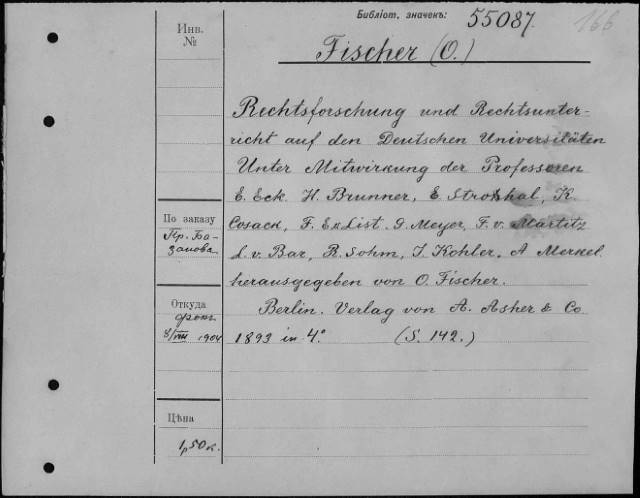 Библіот. значекъ: 55087. 166
Инв. №
Fischer (O.)
Rechtsforschung und Rechtsunter-
richt auf den Deutschen Universitäten
Unter Mitwirkung der Professoren
E. Eck. H. Brunner, E. Strohal, K.
Cosack, F. Ex List. G. Meyer, F. v. Martitz
L. v. Bar, R. Sohm, J. Kohler, A Merkel
herausgegeben von O. Fischer.
Berlin. Verlag von A. Asher & Co
1893 in 4° (S. 142.)
По заказу
Пр. Ба-
занова
Откуда
8/VIII 1904
Цѣна
1,50 к.